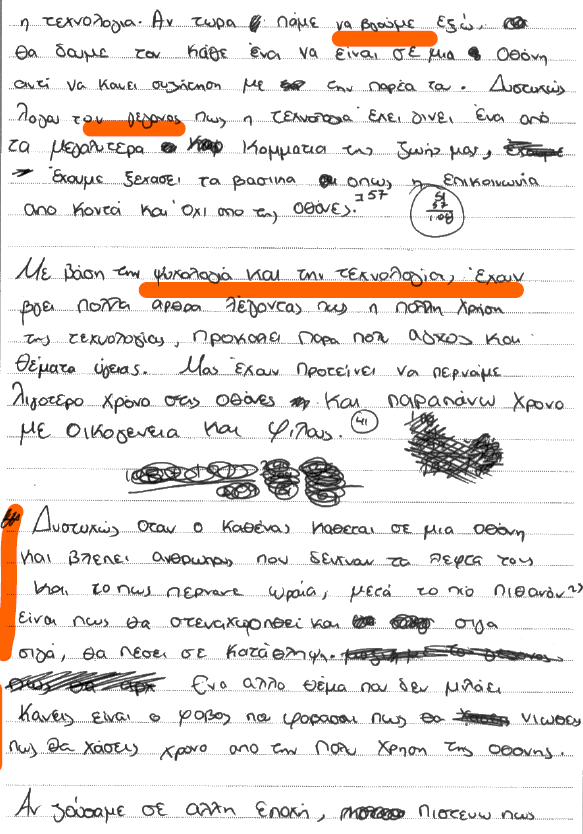 η τεχνολογια. Αν τωρα πάμε να βγούμε εξω,
θα δουμε τον κάθε ένα να είναι σε μια οθόνη
αντί να κανει συζήτηση με την παρέα του. Δυστυχώς
λογου των γεγονος πως η τεχνολογια έχει γινει ένα από
τα μεγαλυτερα κομματια της ζωής μας,
έχουμε ξεχασει τα βασικα οπως η επικοινωνία
απο κοντά και όχι απο της οθόνες. 57
51
57
108
Με βάση την ψυχολογιά και την τεχνολογια, έχουν
βγει πολλα αρθρα λέγοντας πως η πολλη χρήση
της τεχνολογίας, προκαλει παρα πολυ αγχος και
θέματα υγειας. Μας έχουν προτείνει να περναμε
λιγοτερο χρόνο στις οθόνες και παραπάνω χρονο
με οικογενεια και φιλους. 41
Δυστυχώς οταν ο καθένας καθεται σε μια οθονη
και βλεπει ανθρωπους που δειχνουν τα λεφτα τους
και το πως περνανε ωραία, μετά το πιο πιθανόν
είναι πως θα στεναχωρηθεί και σιγα
σιγά, θα πέσει σε κατάθληψη.
Ενα αλλο θέμα που δεν μιλάει
κανεις είναι ο φοβος που φοβασαι πως θα νιωθεις
πως θα χάσεις χρονο απο την πολυ χρηση της οθονης.
Αν ζούσαμε σε αλλη εποχή, πιστευω πως